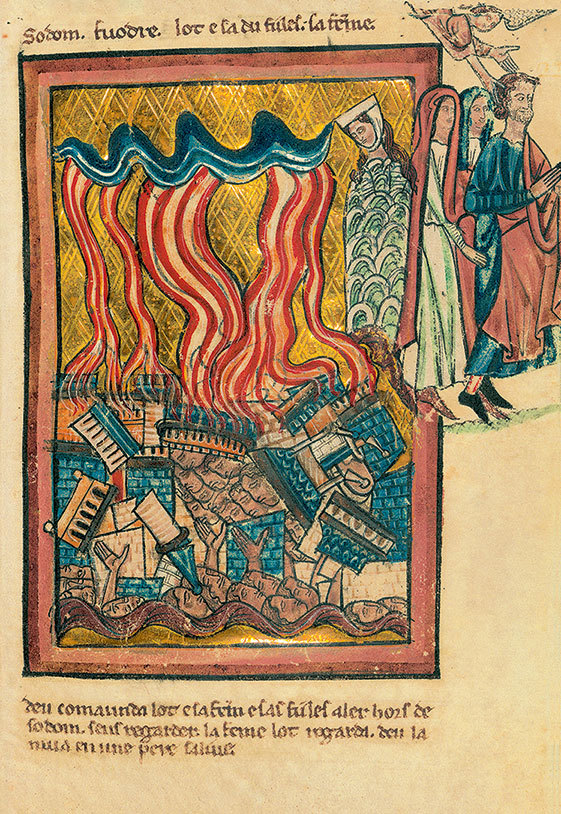 Sodom. fuodre. lot e sa du filles. sa feme.
deu comaunda lot e sa fem e sas filles aler hors de
sodom. sens regarder. la feme lot regarda. deu la
mua en une pere salius.